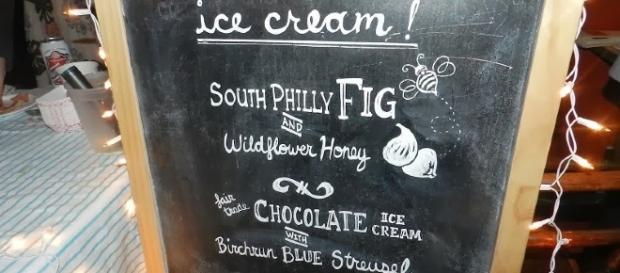 ice cream!
SOUTH PHILLY FIG
AND
Wildflower Honey
fair trade CHOCOLATE ICE CREAM
WITH
Birchrun BLUE Streusel